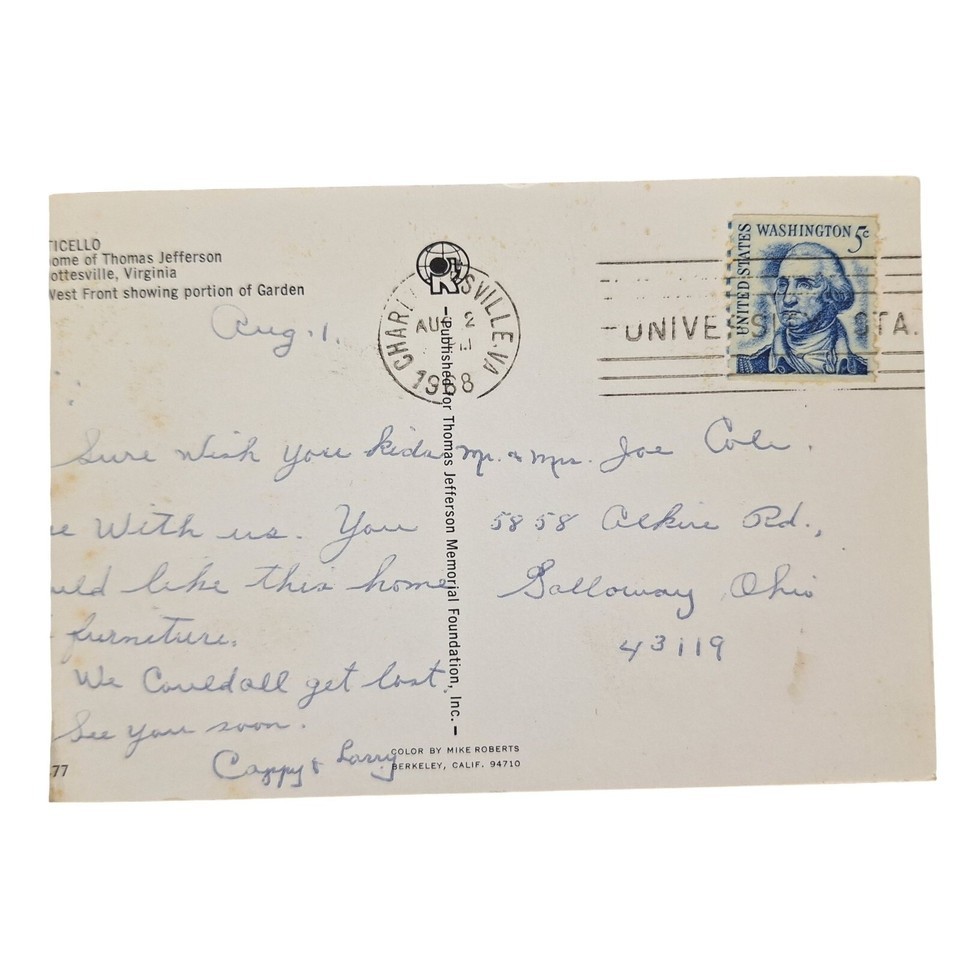 TICELLO
ome of Thomas Jefferson
ottesville, Virginia
West Front showing portion of Garden
Aug. 1.
Sure wish you kids
e with us. You
uld like this home
furniture.
We Could all get lost.
See you soon.
Cappy & Larry
77
CHARL SVILLE, VA
AUG 2
1968
Published for Thomas Jefferson Memorial Foundation, Inc.
COLOR BY MIKE ROBERTS
BERKELEY, CALIF. 94710
UNITED STATES
WASHINGTON 5c
UNIVERSI STA.
Mr. & Mrs. Joe Cole.
5858 Alkire Rd.,
Galloway, Ohio
43119